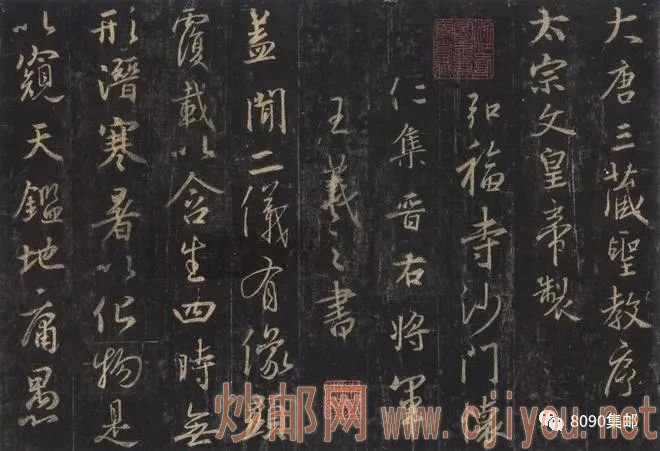 大唐三藏聖教序
太宗文皇帝製
弘福寺沙門懷
仁集晉右將軍
王羲之書
盖聞二儀有像顯
覆載以含生四時無
形潛寒暑以化物是
以窺天鑑地庸愚
炒邮网 www.cjiyou.net
8090集邮